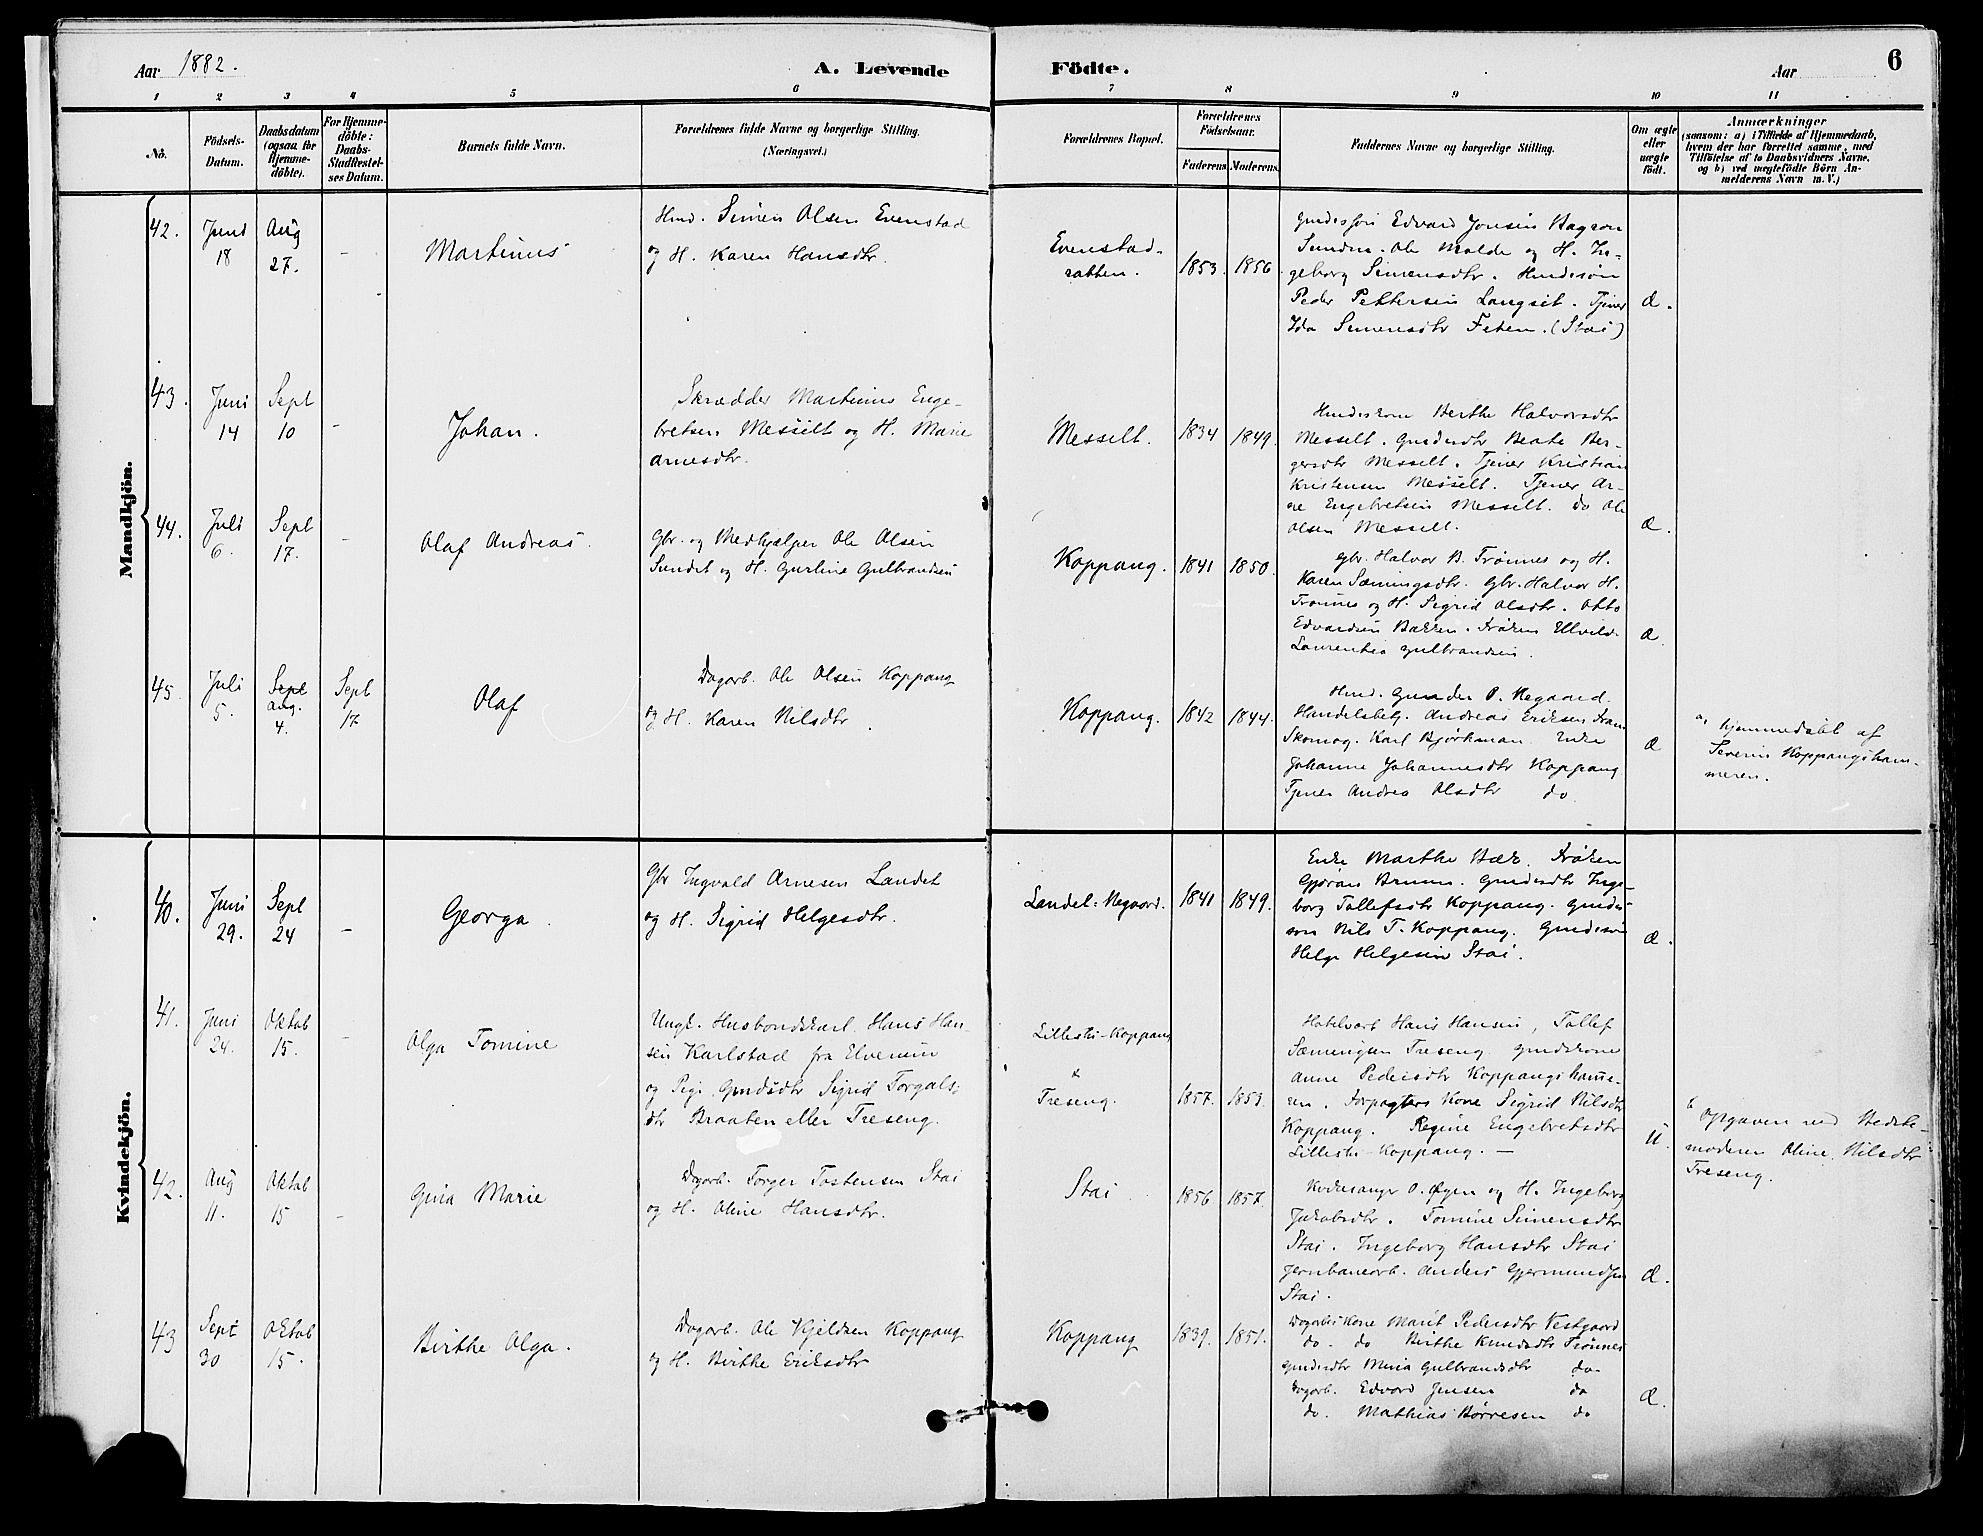 Aar 1882.
A. Levende
Födte.
Aar
6
1 2 3 4 5 6 7 8 9 10 11
No.
Födsels-
Datum.
Daabsdatum
(ogsaa for
Hjemme-
döbte).
For Hjemme-
döbte:
Daabs-
Stadfæstel-
ses Datum.
Barnets fulde Navn.
Forældrenes fulde Navne og borgerlige Stilling.
(Næringsvei.)
Forældrenes Bopæl.
Forældrenes
Födselsaar.
Faderens. Moderens.
Faddernes Navne og borgerlige Stilling.
Om ægte
eller
uægte
födt.
Anmærkninger
(saasom: a) i Tilfælde af Hjemmedaab,
hvem der har forrettet samme, med
Tilföielse af to Daabsvidners Navne,
og b) ved uægtefödte Börn An-
melderens Navn m. V.)
Mandkjön.
42.
Juni
18
Aug
27.
-
Martinus
Hmd. Simen Olsen Evenstad
og H. Karen Hansdtr.
Evenstad-
1853. 1856.
Gmdssøn Edvard Jonsen
Ole Molde og H. In-
geborg Simensdtr. Hmdssøn
Peder Pettersen Langset. Tjener
Ida Simensdtr Feten. (Stai)
Æ.
43.
Juni
14
Sept
10
-
Johan.
Skrædder Martinus Enge-
bretsen Messelt og H. Marie
Arnesdtr.
Messelt.
1834 1849.
Hmdskone Berthe Halvorsdtr
Messelt. Gmdsdtr Beate Ber-
gersdtr Messelt. Tjener Kristian
Kristensen Messelt. Tjener Ar-
ne Engebretsen Messelt. do Ole
Olsen Messelt.
Æ.
44.
Juli
6.
Sept
17.
-
Olaf Andreas.
Gbr. og Medhjælper Ole Olsen
Sundet og H. Gurline Gulbrandsen
Koppang.
1841 1850.
Gbr. Halvor B. Trønnes og H.
Karen Sæmingsdtr. Gbr. Halvor H.
Trønnes og H. Sigrid Olsdtr. Otto
Edvardsen Bakken. Frøken
Laurentea Gulbrandsen.
Æ
45.
Juli
5.
Sept
Aug.
4.
Sept
17
Olaf
Dagarb. Ole Olsen Koppang
og H. Karen Nilsdtr.
Koppang.
1842 1844.
Hmd. Gunder O. Negaard.
Handelsbetj. Andreas Eriksen
Skomag. Karl Bjørkman. Enke
Johanne Johannesdtr Koppang
Tjener Andrea Olsdtr do
Æ
a, hjemmedøbt af
Severin Koppangskam-
meren.
Kvindekjön.
40.
Juni
29.
Sept
24
-
Georga.
Gbr Ingvald Arnesen Landet
og H. Sigrid Helgesdtr.
Landet: Negaard.
1841 1849.
Enke Marthe Bæk. Frøken
Gjøran Bruun. Gmdsdtr Inge-
borg Tollefsdtr Koppang. Gmds-
søn Nils T. Koppang. Gmdssøn
Helge Helgesen Stai.
Æ.
41.
Juni
24.
Oktob
15.
-
Olga Tomine
Ungk. Husbondskarl Hans Han-
sen Karlstad fra Elverum
og Pige Gmdsdtr Sigrid Torgals-
dtr Braaten eller Treseng.
Lillestu-Koppang
&
Treseng.
1857. 1853.
Hotelvært Hans Hansen, Tollef
Sæmingsen Treseng. Gmdskone
Anne Pedersdtr Koppangskamme-
ren. Forpagters Kone Sigrid Nilsdtr
Koppang. Regine Engebretsdtr
Lillestu-Koppang. —
U.
b, Opgaven ved Steds-
moderen Oline Nilsdtr
Treseng.
42.
Aug
11.
Oktob
15
-
Gina Marie
Dagarb. Torger Tostensen Stai
og H. Oline Hansdtr.
Stai.
1856 1857.
Kirkesanger O. Øgen og H. Ingeborg
Jakobsdtr. Tomine Simensdtr
Stai. Ingeborg Hansdtr Stai
Jernbanearb. Anders Gjermundsen
Stai.
Æ.
43
Sept
30
Oktob
15.
Birthe Olga.
Dagarb. Ole Kjeldsen Koppang
og H. Birthe Eriksdtr
Koppang
1839. 1851.
Dagarbs Kone Marit Pedersdtr Vestgaard
do. do Birthe Knudsdtr Trønnes
Gmdsdtr Maria Gulbrandsdtr do
Dagarb. Edvard Jensen do
do. Mathias Børresen do
Æ.